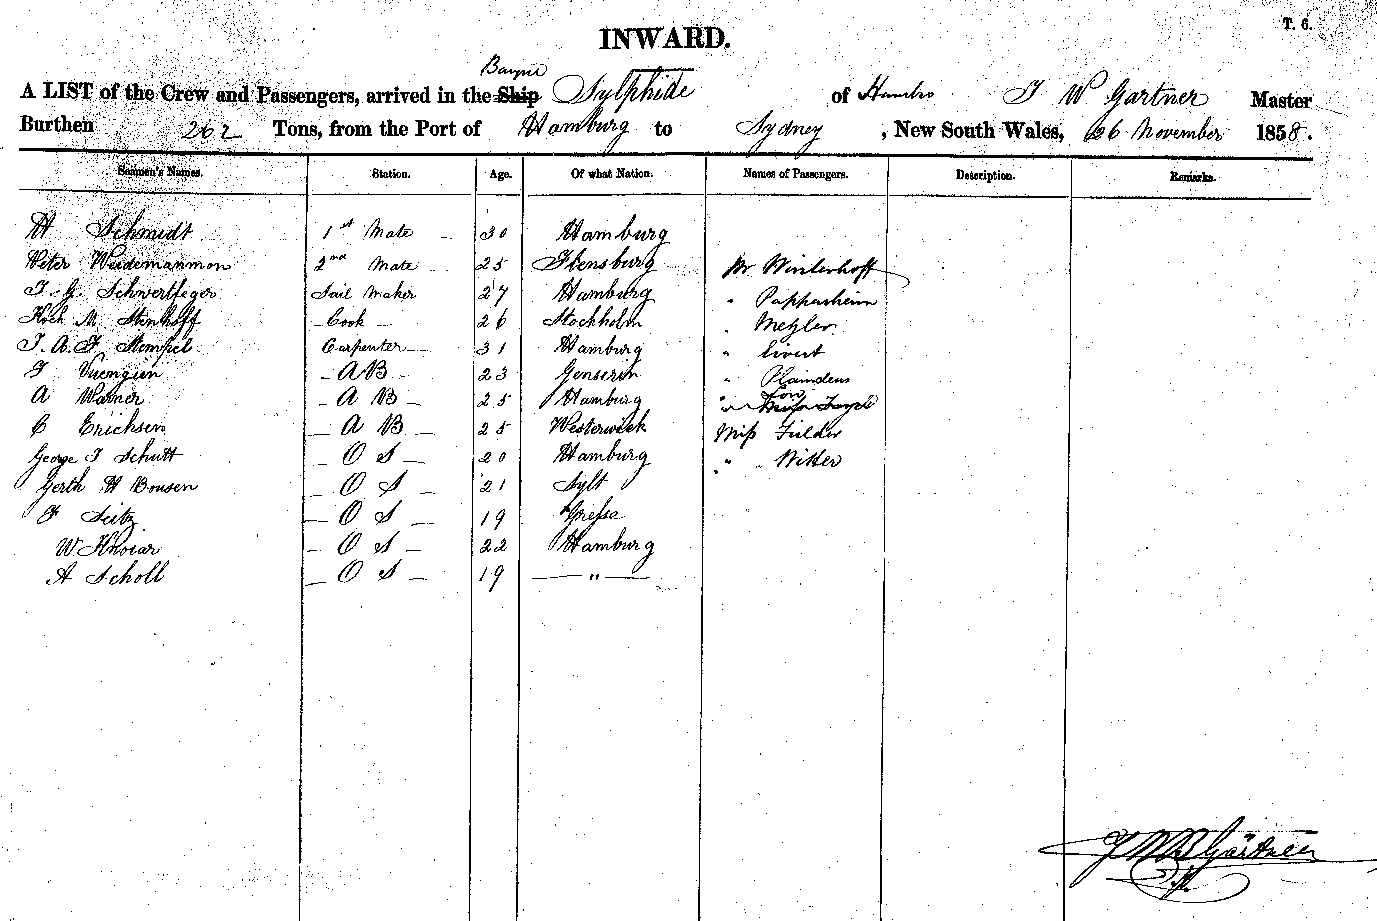 T. 6.
INWARD.
Barque
A LIST of the Crew and Passengers, arrived in the Ship Sylphide of Hambro J W Gartner Master
Burthen 262 Tons, from the Port of Hamburg to Sydney, New South Wales, 26 November 1858.
Seamen's Names. Station. Age. Of what Nation. Names of Passengers. Description. Remarks.
H Schmidt 1st Mate 30 Hamburg
Peter Weidemannmon 2nd Mate 25 Flensburg Mr Winterhoff
J. G. Schwertfeger Sail Maker 27 Hamburg " Pappenheim
M. Stenhoff Cook 26 Stockholm " Metzler
J. A. F. Stempel Carpenter 31 Hamburg "
A B 23 "
A Warner A B 25 Hamburg
C Erichsen A B 25 Westerwick Miss Fulder
George J Schutt O S 20 Hamburg " Witter
Gerth H Bousen O S 21 Sylt
F Seitz O S 19
W O S 22 Hamburg
A Scholl O S 19 "
J W Gärtner